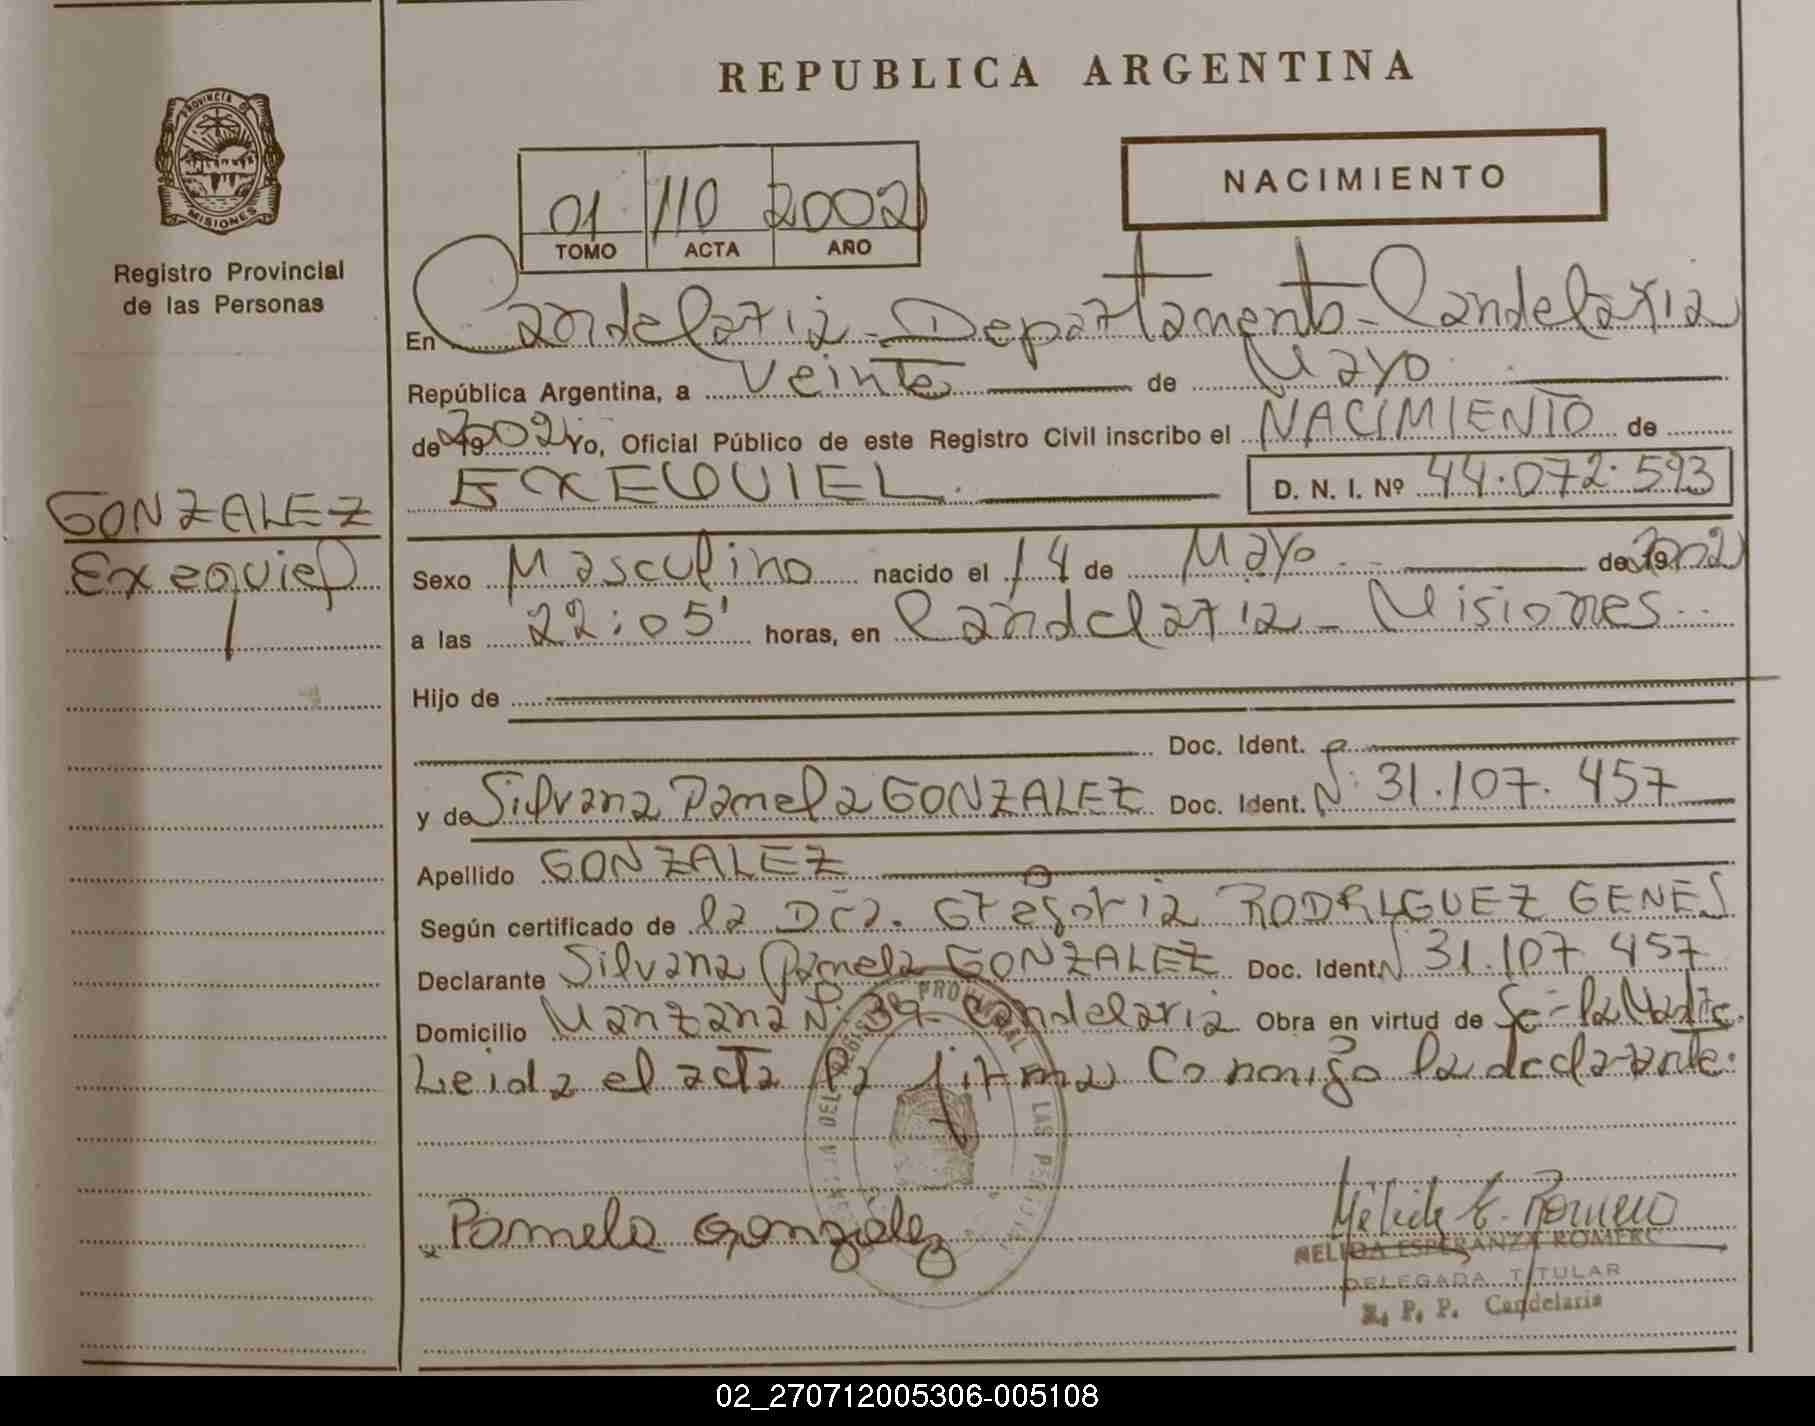 REPUBLICA ARGENTINA
PROVINCIA DE
MISIONES
Registro Provincial
de las Personas
01 110 2002
TOMO ACTA AÑO
NACIMIENTO
En Candelaria - Departamento - Candelaria
República Argentina, a Veinte de Mayo
de 2002 Yo, Oficial Público de este Registro Civil inscribo el NACIMIENTO de
EXEQUIEL D. N. I. Nº 44.072.593
GONZALEZ
Exequiel
Sexo Masculino nacido el 14 de Mayo de 2002
a las 22:05' horas, en Candelaria - Misiones
Hijo de
Doc. Ident.
y de Silvana Pamela GONZALEZ Doc. Ident. Nº 31.107.457
Apellido GONZALEZ
Según certificado de la Dra. Gregoria RODRIGUEZ GENES
Declarante Silvana Pamela GONZALEZ Doc. Ident. Nº 31.107.457
Domicilio Manzana Nº 39 - Candelaria Obra en virtud de Se= la Madre.
Leida el acta la firma Conmigo la declarante.
Pamela González
Nélida E. Romero
NELIDA ESPERANZA ROMERO
DELEGADA TITULAR
R. P. P. Candelaria
02_270712005306-005108